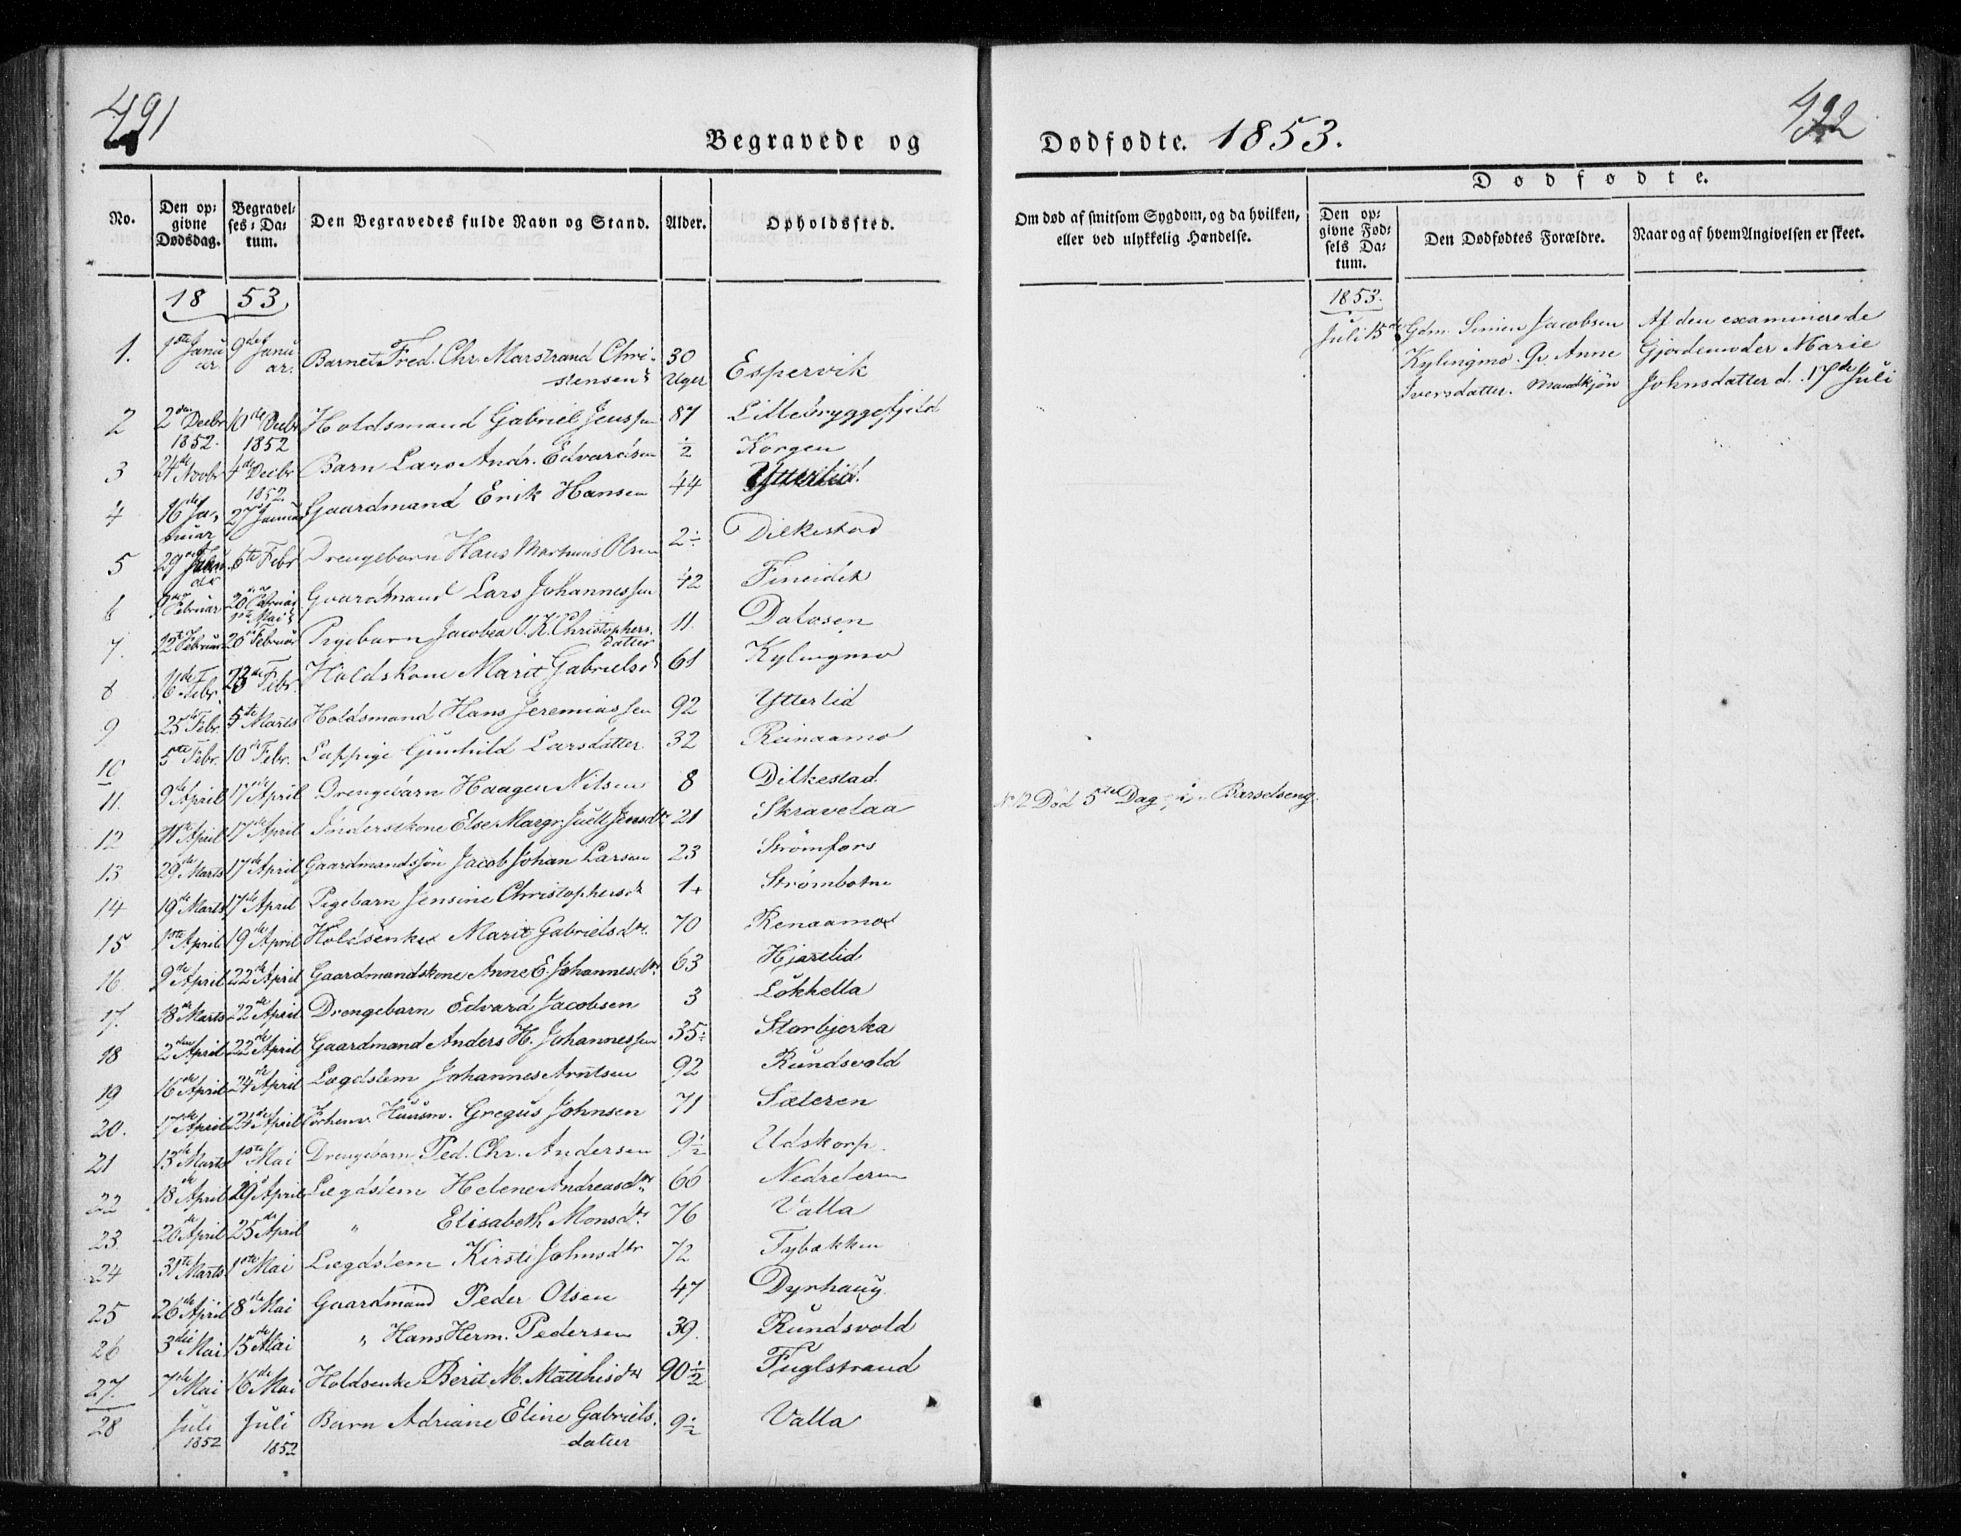 491
Begravede og
No.
Den op-
givne
Dødsdag.
Begravel-
ses-Da-
tum.
Den Begravedes fulde Navn og Stand.
Alder.
Opholdssted.
18 53
1. 1ste Janu 9de Janu
ar. ar. Barnet Fred. Chr. Marstrand Chri- 30 Espervik
stensen Uger
2 2den Decbr 10de Decbr Holdsmand Gabriel Jenssen 87 Littlebryggefjeld
1852. 1852
3 24de Novbr 4de Decbr Barn Lars Andr. Edvardsen ½ Korgen
1852.
4 16de Ja- 27 Januar Gaardmand Erik Hansen 44 Ytterlid.
nuar
5 29 Janu 6te Febr Drengebarn Hans Martinus Olsen 2 Dilkestad
ar
6 Februar 20 Februar Gaardmand Lars Johannessen 42 Fineidet
1ste Mai
7. 12te Februar 20de Februar Pigebarn Jacobea Christophers. 11. Dalosen
datter
8 16 Febr. 23de Febr. Holdskone Marit Gabrielsd 61 Kylingmo
9 25 Febr. 5te Marts Holdsmand Hans Jeremiassen 92 Ytterlid
10 5te Febr. 10de Febr. Lappige Gunhild Larsdatter 32 Reinaamo
11. 9de April 17de April Drengebarn Haagen Nilsen 8 Dilkestad
12 11te April 17de April Inderstkone Else Margr. Juell Jensdtr 21 Skravelaa
13 29de Marts 17de April Gaardmandssøn Jacob Johan Larsen 23 Strømfors
14 19de Marts 17de April Pigebarn Jensine Christophersd 1 Strømbotne
15 1ste April 19de April Holdsenke Marit Gabrielsdtr. 70 Renaamo
16 9de April 22de April Gaardmandskone Anne E. Johannesdtr 63 Hjartlid
17. 18de Marts 22de April Drengebarn Edvard Jacobsen 3 Løkhella
18 2den April 22de April Gaardmand Anders H. Johannessen 35 Storbjerka
19 16de April 24de April Lægdslem Johannes Arntsen 92 Rundsvold
20. 17de April 24de April Huusm. Gregus Johnsen 71 Sæteren
21 13de Marts 1ste Mai Drengebarn Ped. Chr. Andersen 9½ Udskorp.
22 18de April 29de April Lægdslem Helene Andreasdtr 66 Nedreleren
23 20de April 25de April " Elisabeth Monsdtr. 76 Valla
24 31te Marts 1ste Mai Lægdslem Kirsti Johnsdtr 72 Fybækken
25 26de April 8de Mai Gaardmand Peder Olsen 47 Dyrhaug
26 3die Mai 15de Mai " Hans Herm. Pedersen 39. Rundsvold
27. 7de Mai 16de Mai Holdsenke Berit M. Matthisdtr 90½ Fuglstrand
28 Juli Juli Barn Adriane Eline Gabriels. 9½ Valla
1852 1852 datter
492
Dødfødte. 1853.
Dødfødte.
Om død af smitsom Sygdom, og da hvilken,
eller ved ulykkelig Hændelse.
Den op-
givne Fød-
sels Da-
tum.
Den Dødfødtes Forældre.
Naar og af hvem Angivelsen er skeet.
1853.
Juli 15de Gdm. Simen Jacobsen Af den examinerede
Kylingmo. Anne Gjordemoder Marie
Iversdatter. Mandkjøn Johnsdatter d. 17de Juli
No 12 Død 5te Dag i Barselseng.